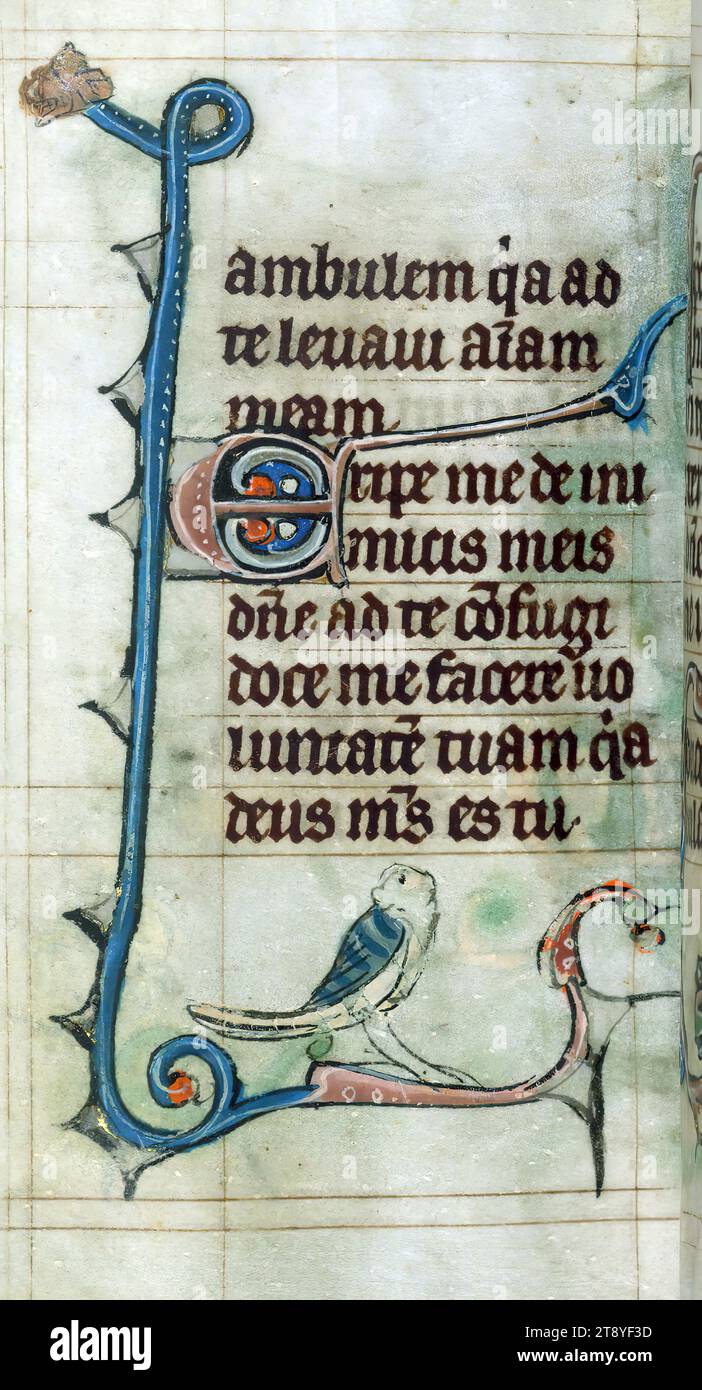 ambulem q̍a ad
te leuaui aīam
meam
Eripe me de ini
micis meis
dn̄e ad te cōfugi
doce me facere uo
luntatē tuam q̍a
deus m̄s es tu·
alamy
alamy
a
a
alamy
Image ID: 2T8YF3D
www.alamy.com